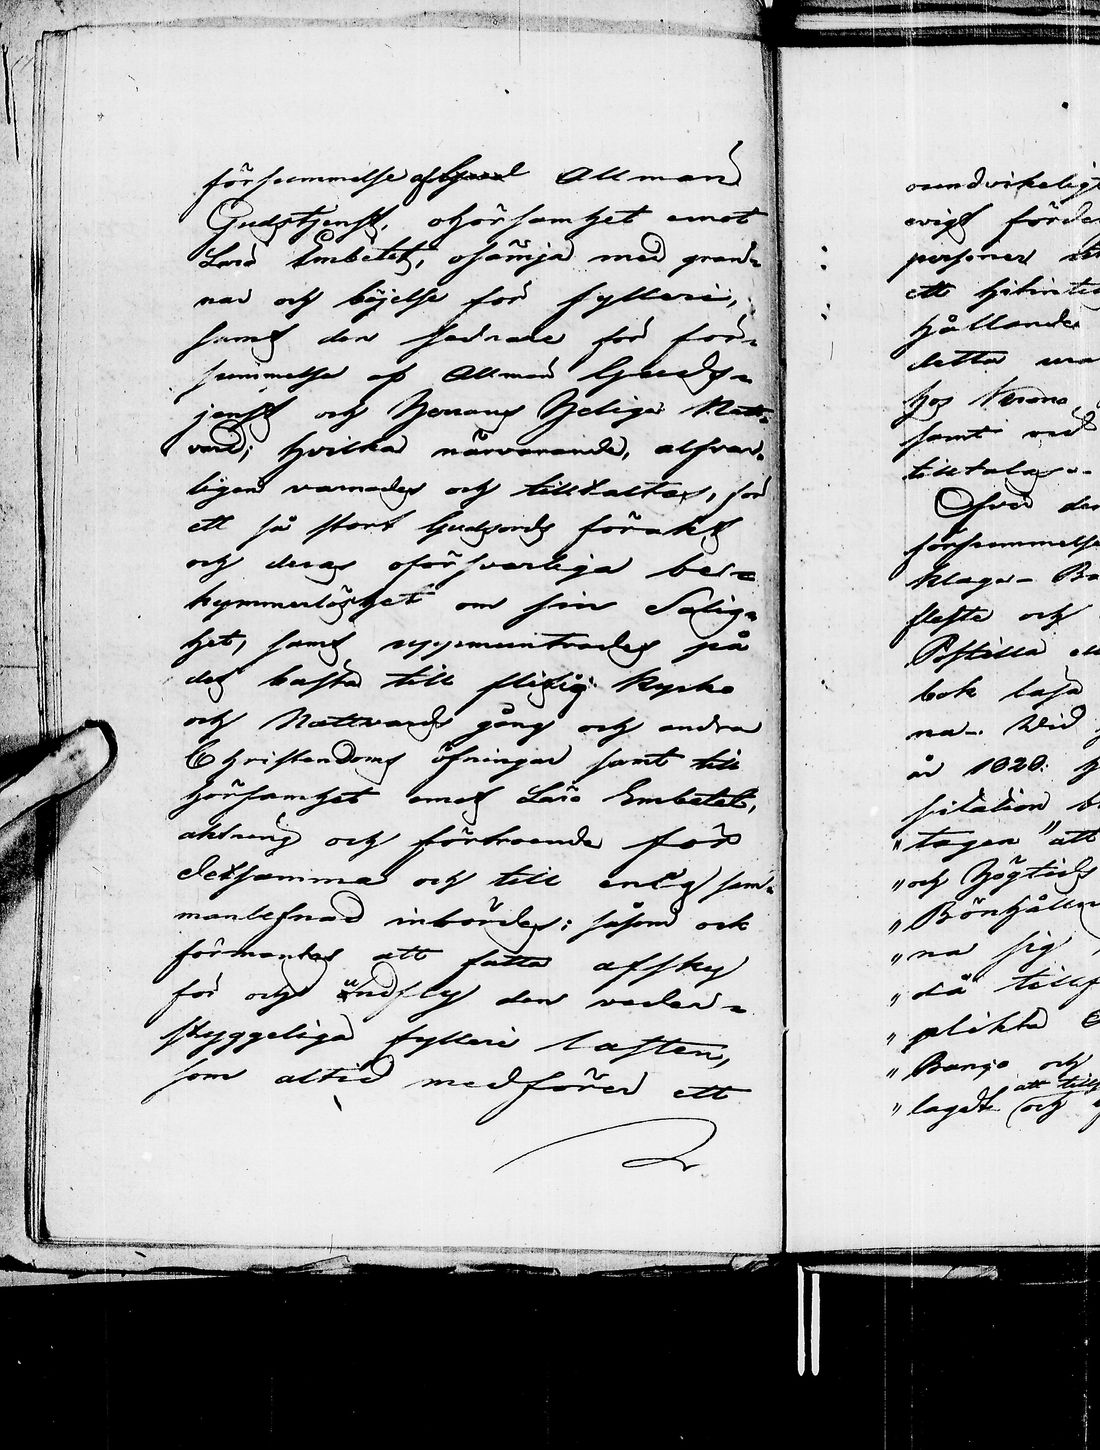 försummelse af Allmän
Gudstjenst, ohörsamhet emot
Läro Embetet, osämja med gran-
nar och böjelse för fylleri,
samt den sednare för för-
summelse af Allmän Guds-
jenst och Herrans Heliga Natt-
vard; hvilka närvarande, alfvar-
ligen varnades och tilltaltes, för
ett så stort Gudsords förakt
och deras oförsvarliga be-
kymmerlöshet om sin Salig-
het, samt uppmuntrades på
det bästa till flitig Kyrko
och Nattvards gång och andra
Christendoms öfningar samt till
hörsamhet emot Läro Embetet,
aktning och förtroende för
detsamma och till enig sam-
manlefnad inbördes; såsom ock
förmantes att fatta afsky
för och undfly den veder-
styggeliga fylleri lasten,
som altid medförer ett
oundvikeligt
evigt förder
personer
ett
hållande
detta
hos Krono
samt ved
tilltalas.
Öfver den
försummelse
klaga
flesta och
Postilla
bok läsa
na. Wid
år 1820.
sitation
"tagen "att
"och Högtids
"Bönhållen
"na sig
"då tillf
"plikta
"Banco och
att till
"laget och